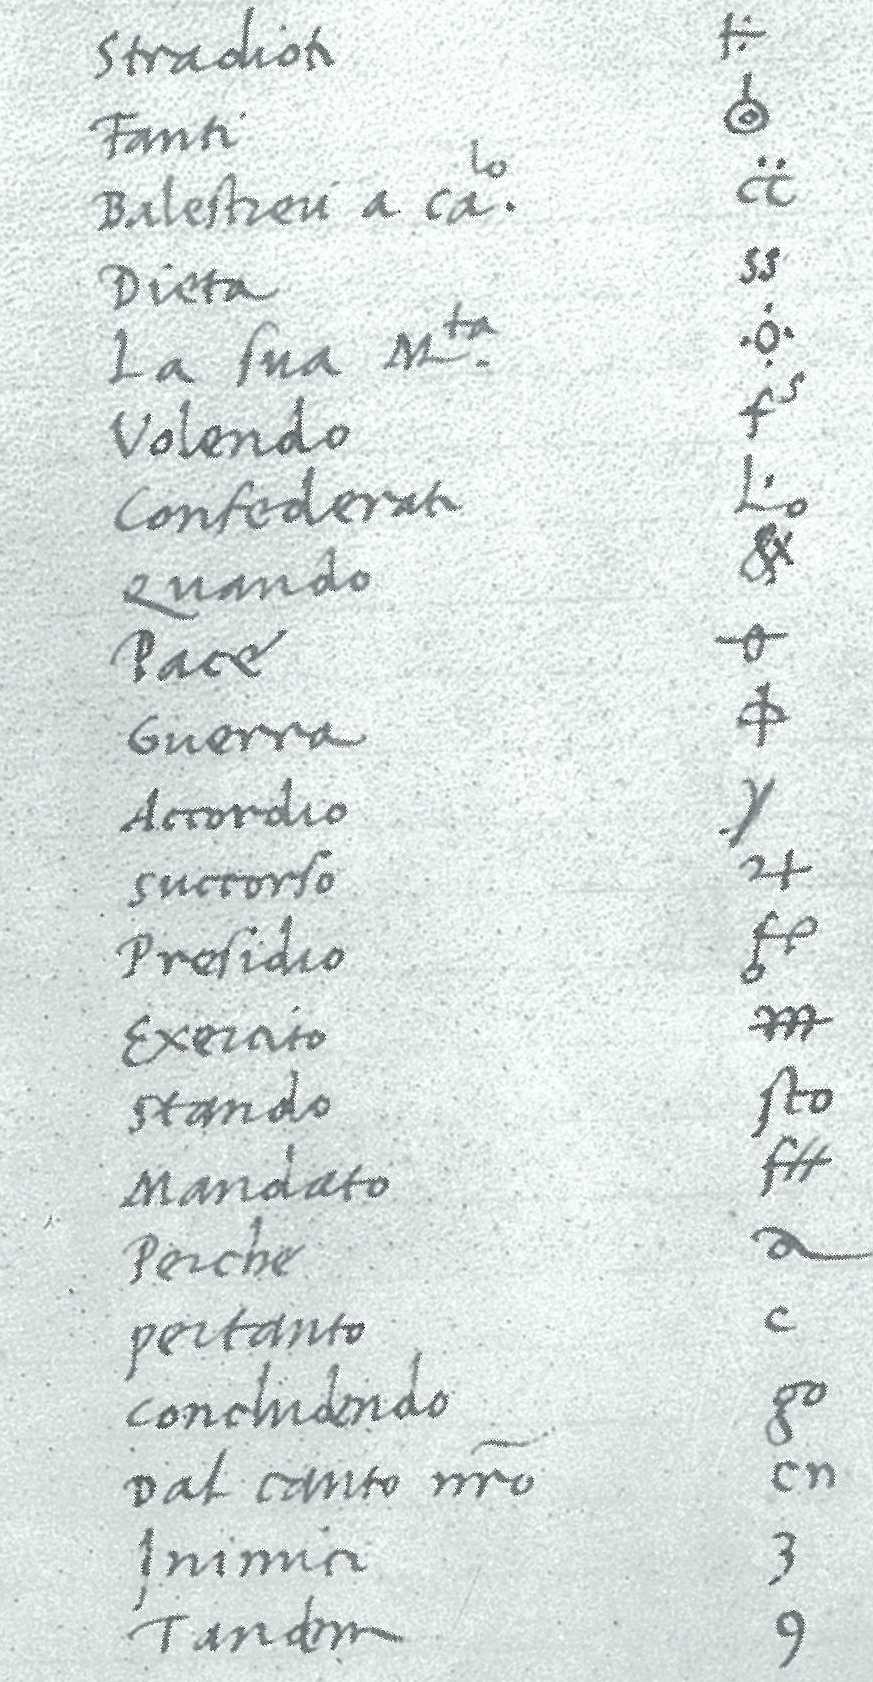 Stradioti
Fanti
Balestrieri a ca.lo c̈c̈
Dieta ss
La sua M.ta ·o·
Volendo fs
Confederati L·o
quando &x
Pace o
Guerra ф
Accordio y
succorso 4
Presidio
Exercito m
stando sto
Mandato
Perche a
pertanto c
concludendo go
Dal canto nr̃o cn
Inimici 3
Tandem 9